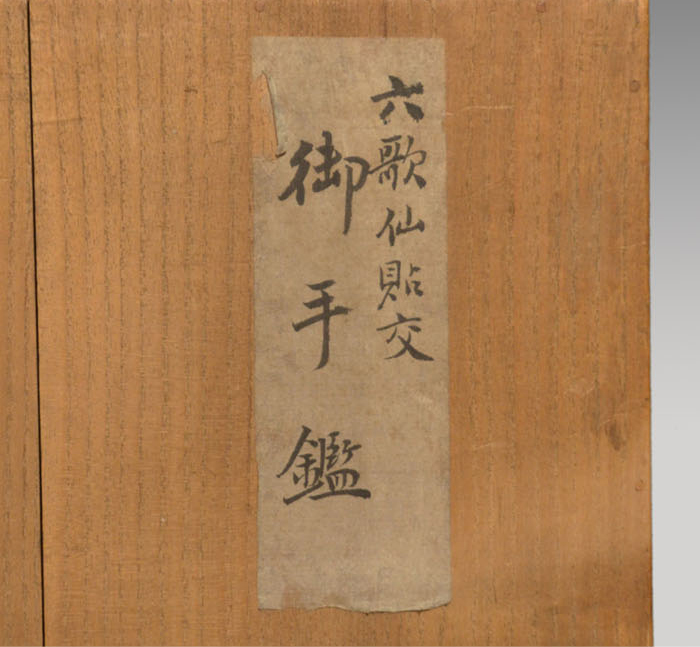 六歌仙貼交
御手鑑